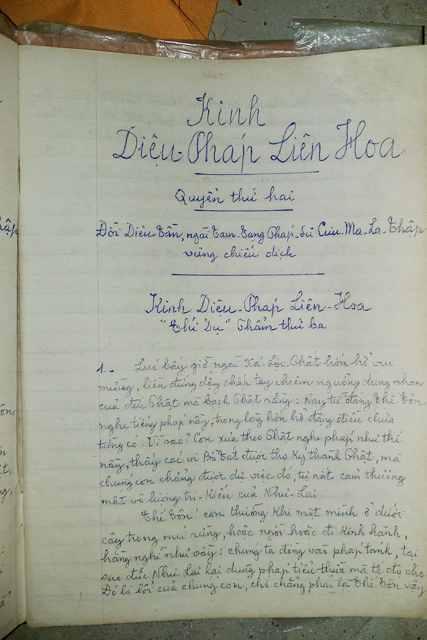 Kinh
Diệu-Pháp Liên Hoa
Quyển thứ hai
Đời Diêu-Tần, ngài Tam-Tạng Pháp-Sư Cưu-Ma-La-Thập
vâng chiếu dịch
Kinh Diệu-Pháp Liên-Hoa
"Thí Dụ" Phẩm thứ ba
1._ Lúc bấy giờ ngài Xá-Lợi-Phất hớn hở vui
mừng, liền đứng dậy chắp tay chiêm ngưỡng dung nhan
của đức Phật mà bạch Phật rằng: Nay từ đấng Thế Tôn
nghe tiếng pháp này, trong lòng hớn hở đặng điều chưa
từng có. Vì sao? Con xưa theo Phật nghe pháp như thế
này, thấy các vị Bồ Tát được thọ ký thành Phật, mà
chúng con chẳng được dự việc đó, tự rất cảm thương
mất vô lượng tri-kiến của Như-Lai.
Thế Tôn! con thường khi một mình ở dưới
cây trong núi rừng, hoặc ngồi hoặc đi kinh hành,
hằng nghĩ như vầy: chúng ta đồng vào pháp tánh, tại
sao đức Như Lai lại dùng pháp tiểu thừa mà tế độ cho
Đó là lỗi của chúng con, chi chẳng phải là Thế Tôn vậy